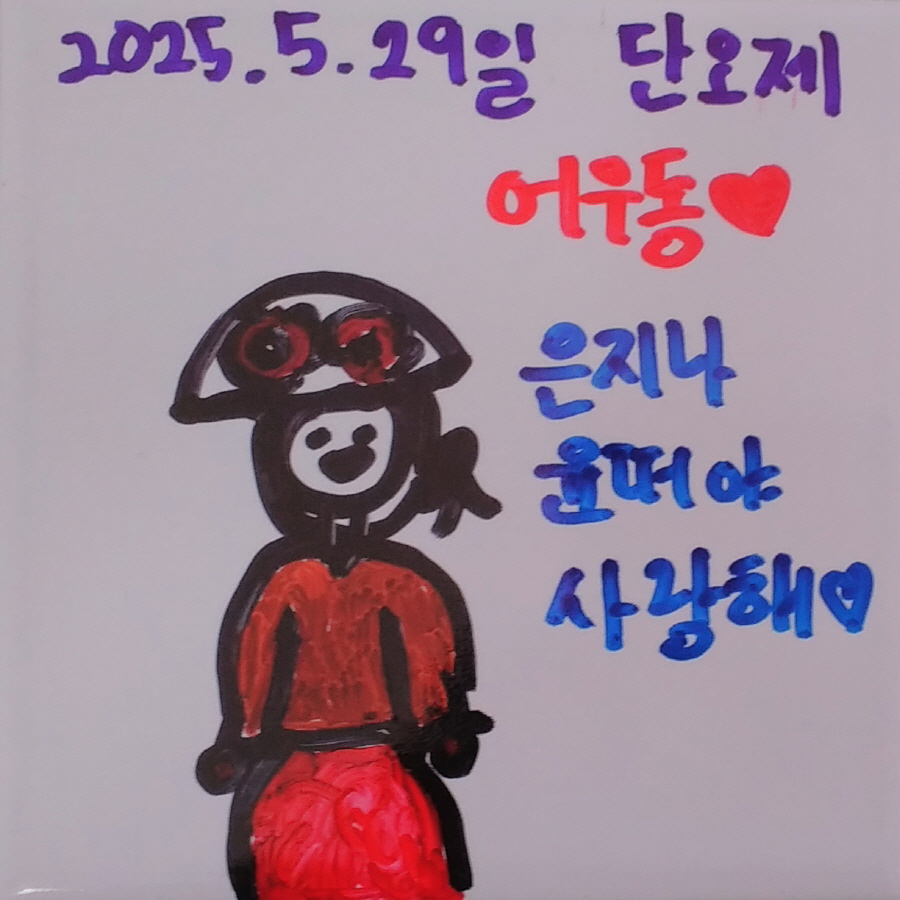 2025.5.29일 단오제
어우동♥
은지나
윤떠야
사랑해♡